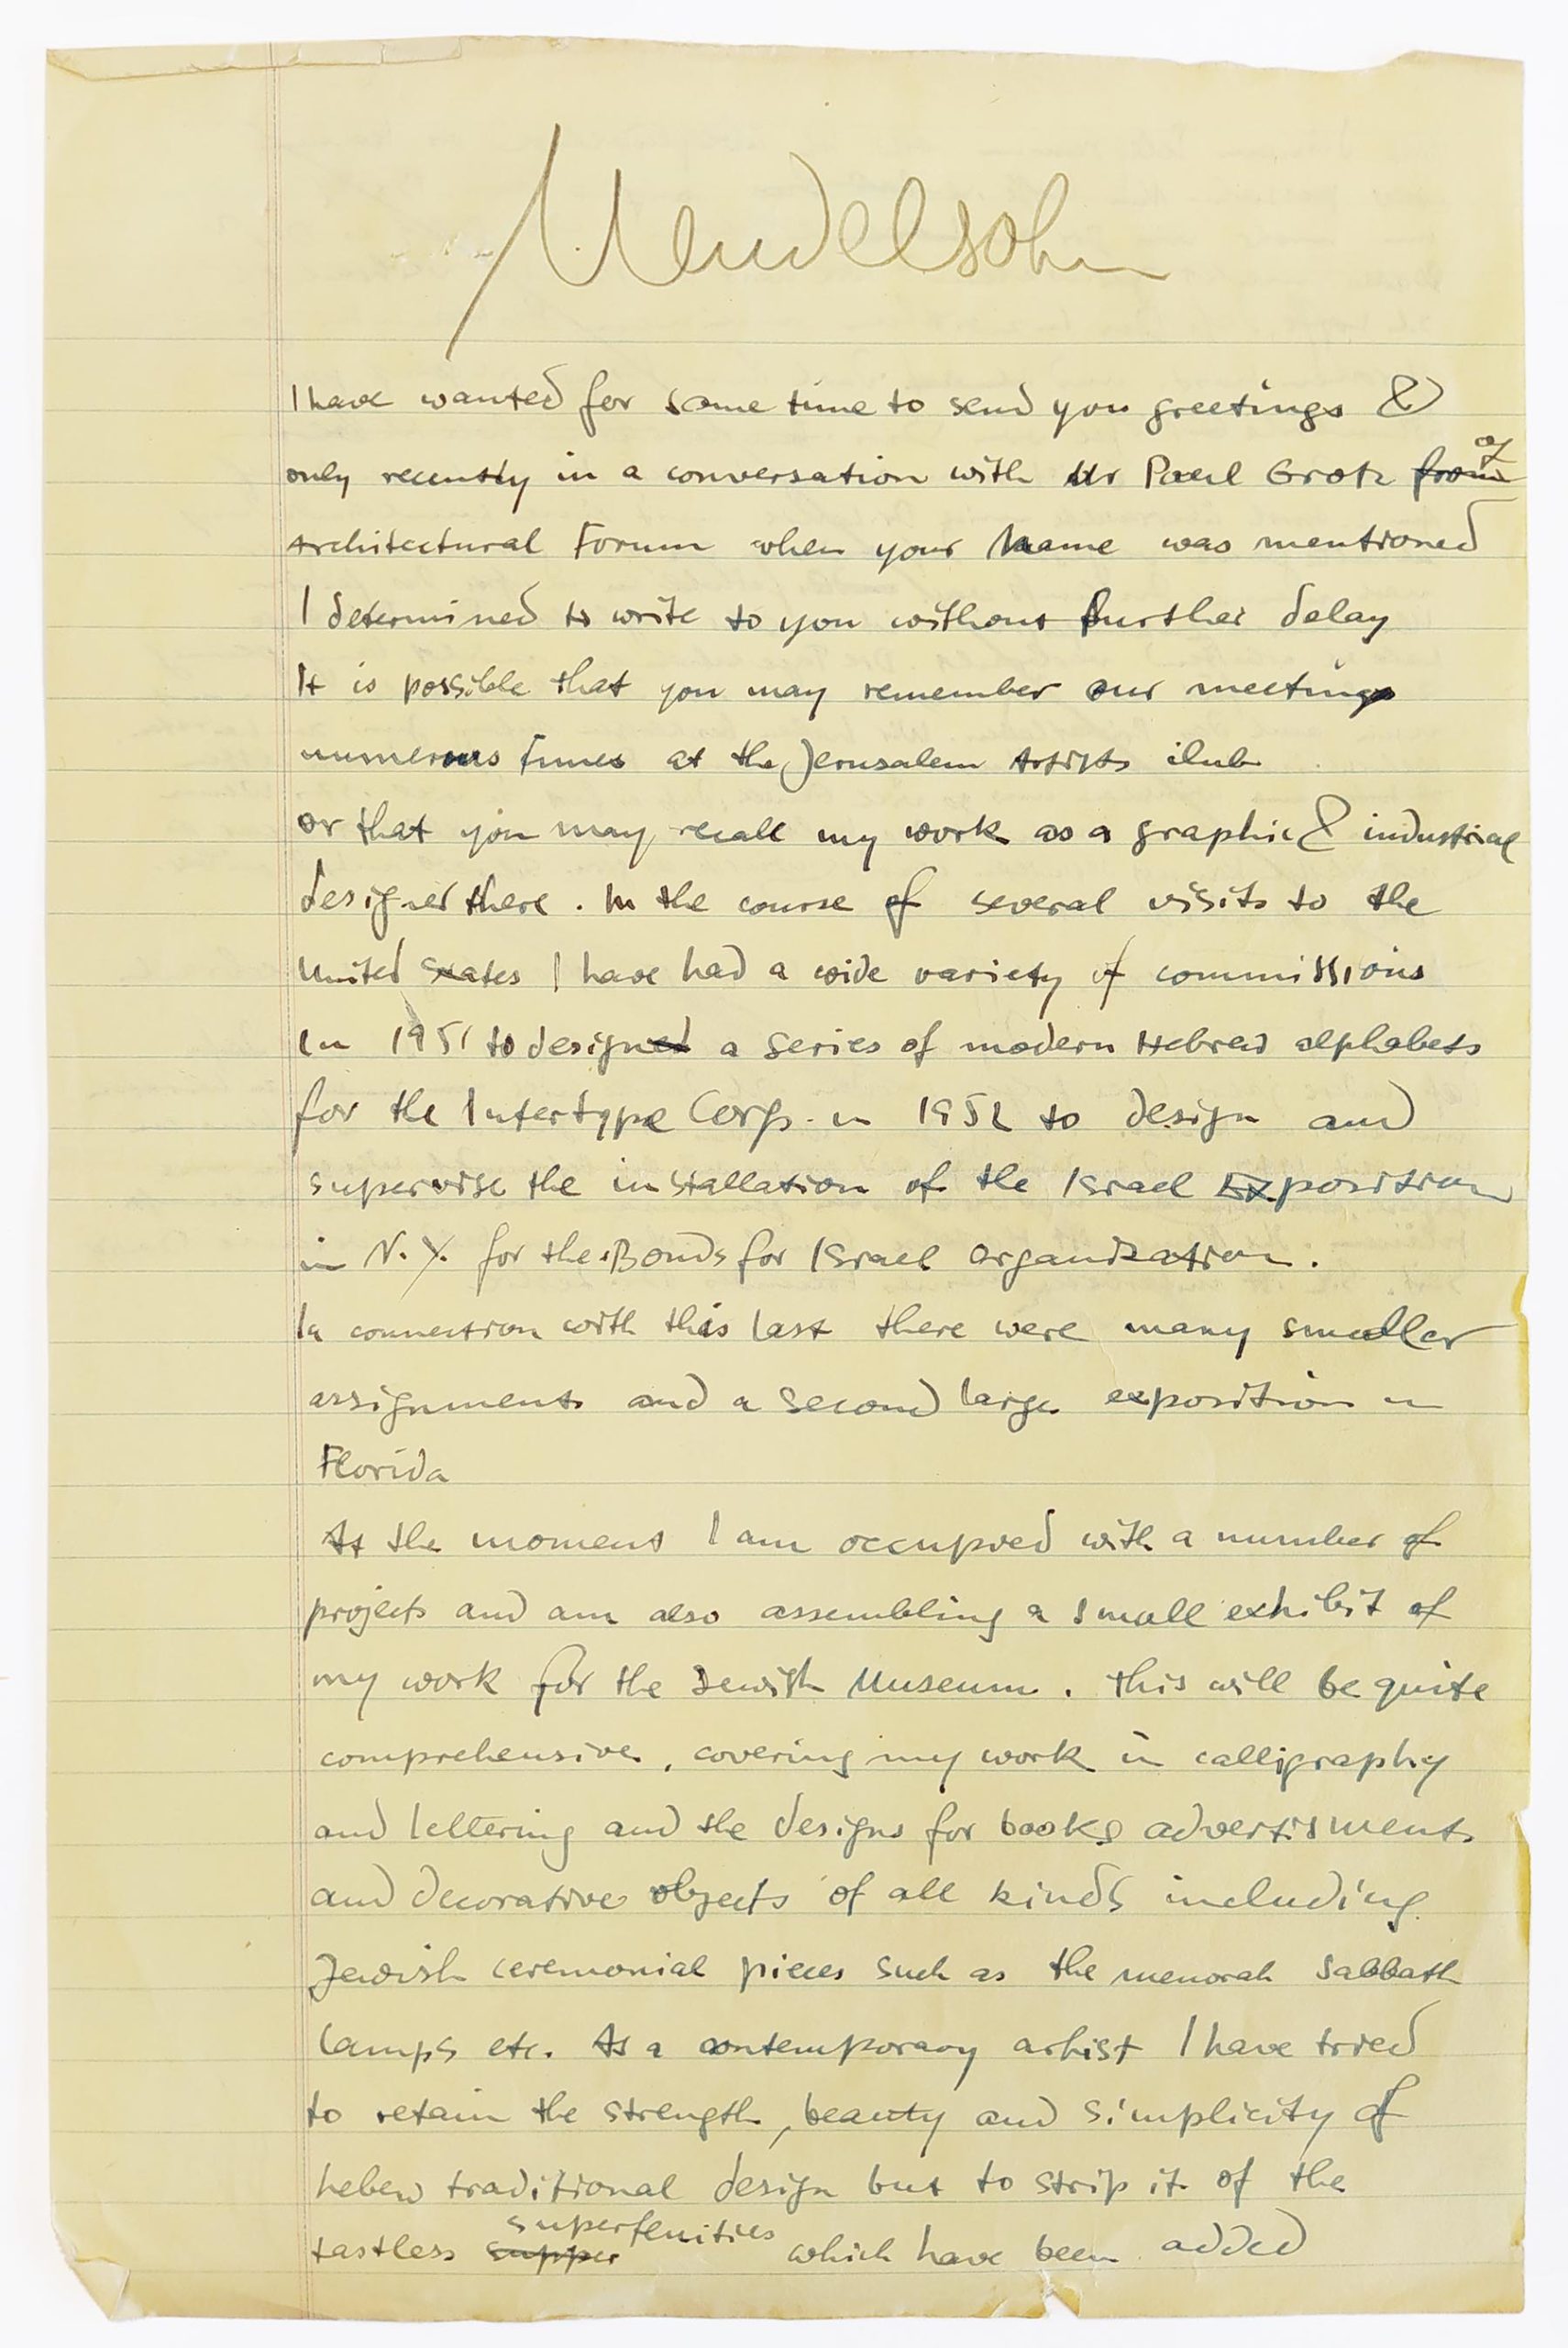 Mendelsohn
I have wanted for some time to send you greetings &
only recently in a conversation with Mr Paul Grotz from of
Architectural Forum when your name was mentioned
I determined to write to you without further delay
It is possible that you may remember our meetings
numerous times at the Jerusalem Artists club
or that you may recall my work as a graphic & industrial
designer there. In the course of several visits to the
United States I have had a wide variety of commissions
In 1951 to designed a series of modern Hebrew alphabets
for the Intertype Corp. in 1952 to design and
supervise the installation of the Israel Exposition
in N.Y. for the Bonds for Israel Organization.
In connection with this last there were many smaller
assignments and a second large exposition in
Florida
At the moment I am occupied with a number of
projects and am also assembling a small exhibit of
my work for the Jewish Museum. This will be quite
comprehensive, covering my work in calligraphy
and lettering and the designs for books advertisments
and decorative objects of all kinds including
Jewish ceremonial pieces such as the menorah Sabbath
lamps etc. As a contemporary artist I have tried
to retain the strength, beauty and simplicity of
hebew traditional design but to strip it of the
tastless supper superfluities which have been added